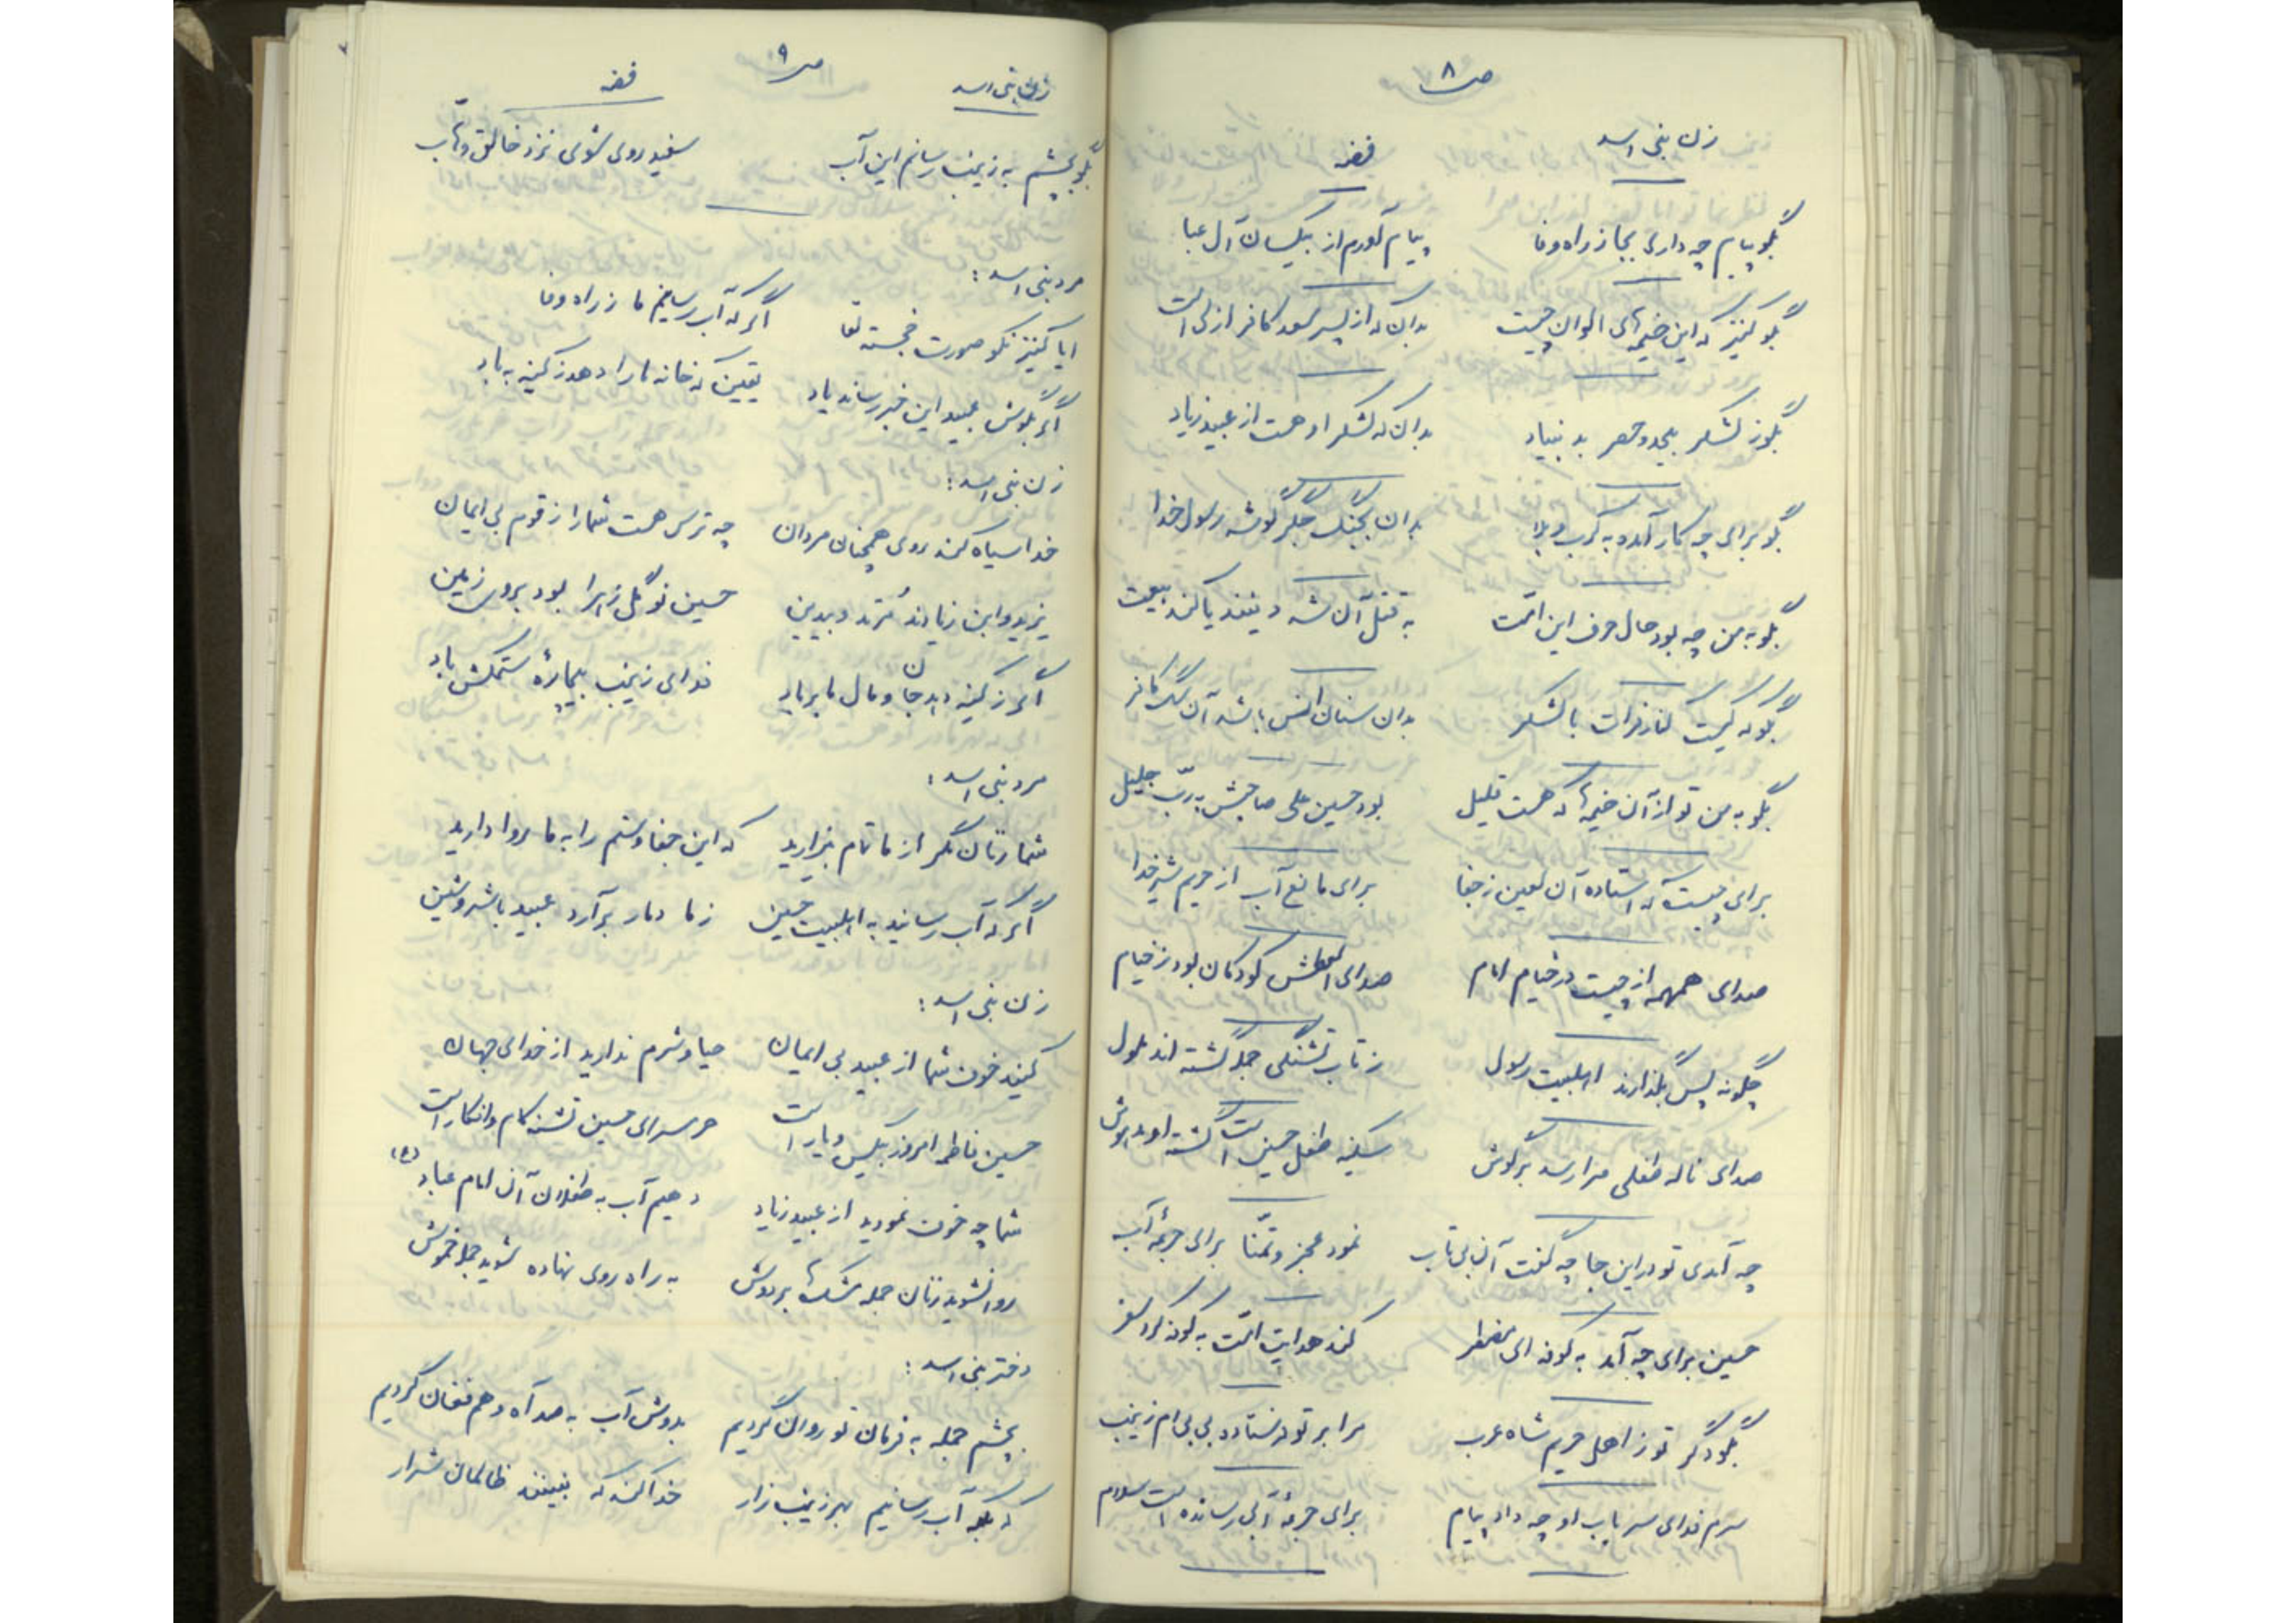 ص ۸
زن بنی اسد فضه
بگو پیام چه داری بجا ز راه وفا پیام آورم از بیکسان آل عبا
بگو کنیز که این خیمه‌های الوان چیست بدان که از پسر سعد کافر ازلی است
بگو ز لشکر بیحد و حصر بد بنیاد بدان که لشکر او هست از عبید زیاد
بگو برای چه کار آمده به کرب و بلا بدان بجنگ جگرگوشه رسول خدا
بگو به من چه بود حال حرف این امت به قتل آن شه دینند یا کند بیعت
بگو که کیست کنار فرات با لشکر بدان سنان انس باشد آن سگ کافر
بگو به من تو از آن خیمه‌ها که هست قلیل بود حسین علی صاحبش به ربّ جلیل
برای چیست که استاده آن لعین ز جفا برای مانع آب از حریم شیر خدا
صدای همهمه از چیست در خیام امام صدای العطش کودکان بود ز خیام
چگونه پس بگذارند اهلبیت رسول ز تاب تشنگی جمله گشته‌اند ملول
صدای ناله طفلی مرا رسد بر گوش سکینه طفل حسین است گشته او مدهوش
چه آمدی تو در این جا چه گفت آن بی تاب نمود عجز و تمنّا برای جرعهٔ آب
حسین برای چه آمد به کوفه ای مضطر کند هدایت امّت به کوفه کرد سفر
بگو دگر تو ز اهل حریم شاه عرب مرا بر تو فرستاده بی بی‌ام زینب
سرم فدای سر باب او چه داد پیام برای جرعهٔ آبی رسانده است سلام
ص ۹
زن بنی اسد فضه
بگو بچشم به زینب رسانم این آب سفید روی شوی نزد خالق وهّاب
مرد بنی اسد:
ایا کنیز نکو صورت خجسته لقا اگر که آب رسانیم ما ز راه وفا
اگر بگوش عبید این خبر رساند باد یقین که خانه ما را دهد ز کینه به باد
زن بنی اسد:
خدا سیاه کند روی همچنان مردان چه ترس هست شما را ز قوم بی ایمان
یزید و ابن زیادند مُرتد و بیدین حسین نوگل زهرا بود بروی زمین
اگر ز کینه دهد جان و مال ما بر باد فدای زینب بیچارهٔ ستمکش باد
مرد بنی اسد:
شما زنان مگر از ما تمام بیزارید که این جفا و ستم را به ما روا دارید
اگر که آب رسانید به اهلبیت حسین ز ما دمار برآرد عبید با شر و شین
زن بنی اسد:
کنید خوف شما از عبید بی ایمان حیا و شرم ندارید از خدای جهان
حسین فاطمه امروز بیکس و یار است حرمسرای حسین تشنه کام و افکار است
شما چه خوف نمودید از عبید زیاد دهیم آب به طفلان آن امام عباد (ع)
روان شوید زنان جمله مشکها بر دوش به راه روی نهاده شوید جمله خموش
دختر بنی اسد:
بچشم جمله به فرمان تو روان گردیم بدوش آب به صد آه و هم فغان گردیم
که بلکه آب رسانیم بهر زینب زار خدا کند که نبینند ظالمان شرار